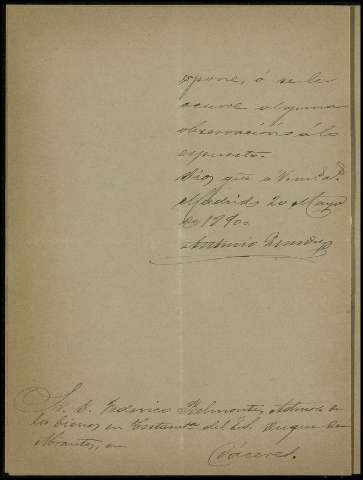 spone, ó se les
ocurre alguna
observación á lo
espuesto.
Dios gue a V. m. a.
Madrid 20 Mayo
de 1890
Antonio
Sr. D. Federico Belmonte, Admor. de
los bienes en Extremra. del Sr. Duque de
Abrantes, en
Cáceres.